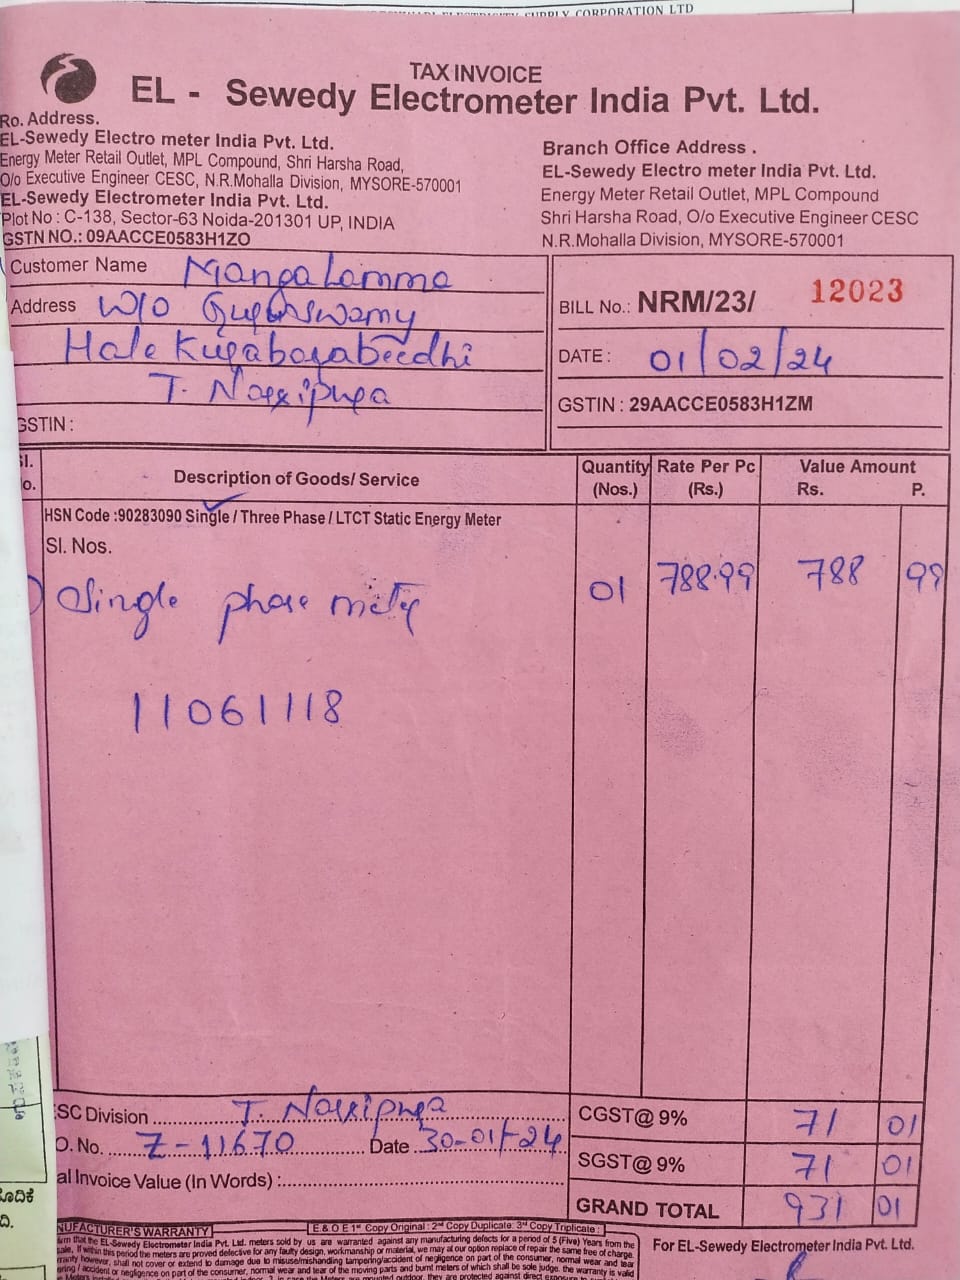 SUPPLY CORPORATION LTD
TAX INVOICE
EL - Sewedy Electrometer India Pvt. Ltd.
Ro. Address.
EL-Sewedy Electro meter India Pvt. Ltd.
Energy Meter Retail Outlet, MPL Compound, Shri Harsha Road,
O/o Executive Engineer CESC, N.R.Mohalla Division, MYSORE-570001
EL-Sewedy Electrometer India Pvt. Ltd.
Plot No : C-138, Sector-63 Noida-201301 UP, INDIA
GSTN NO.: 09AACCE0583H1ZO
Branch Office Address .
EL-Sewedy Electro meter India Pvt. Ltd.
Energy Meter Retail Outlet, MPL Compound
Shri Harsha Road, O/o Executive Engineer CESC
N.R.Mohalla Division, MYSORE-570001
Customer Name Mangalamma
Address W/o
Hale
T. Narsipura
GSTIN :
BILL No.: NRM/23/ 12023
DATE : 01/02/24
GSTIN : 29AACCE0583H1ZM
Sl. No. Description of Goods/ Service Quantity (Nos.) Rate Per Pc (Rs.) Value Amount Rs. P.
HSN Code :90283090 Single / Three Phase / LTCT Static Energy Meter
Sl. Nos.
Single phase meter 01 788.99 788 99
11061118
SC Division T. Narsipura
O. No. Z-11670 Date 30-01-24
al Invoice Value (In Words) :
CGST@ 9% 71 01
SGST@ 9% 71 01
GRAND TOTAL 931 01
NUFACTURER'S WARRANTY
E & O E 1st Copy Original : 2nd Copy Duplicate: 3rd Copy Triplicate :
irm that the EL-Sewedy Electrometer India Pvt. Ltd. meters sold by us are warranted against any manufacturing defects for a period of 5 (Five) Years from the
sale, If within this period the meters are proved defective for any faulty design, workmanship or material, we may at our option replace of repair the same free of charge.
rranty however, shall not cover or extend to damage due to misuse/mishandling tampering/accident of negligence on part of the consumer, normal wear and tear
ering / accident or negligence on part of the consumer, normal wear and tear of the moving parts and burnt meters of which shall be sole judge. the warranty is valid
For EL-Sewedy Electrometer India Pvt. Ltd.